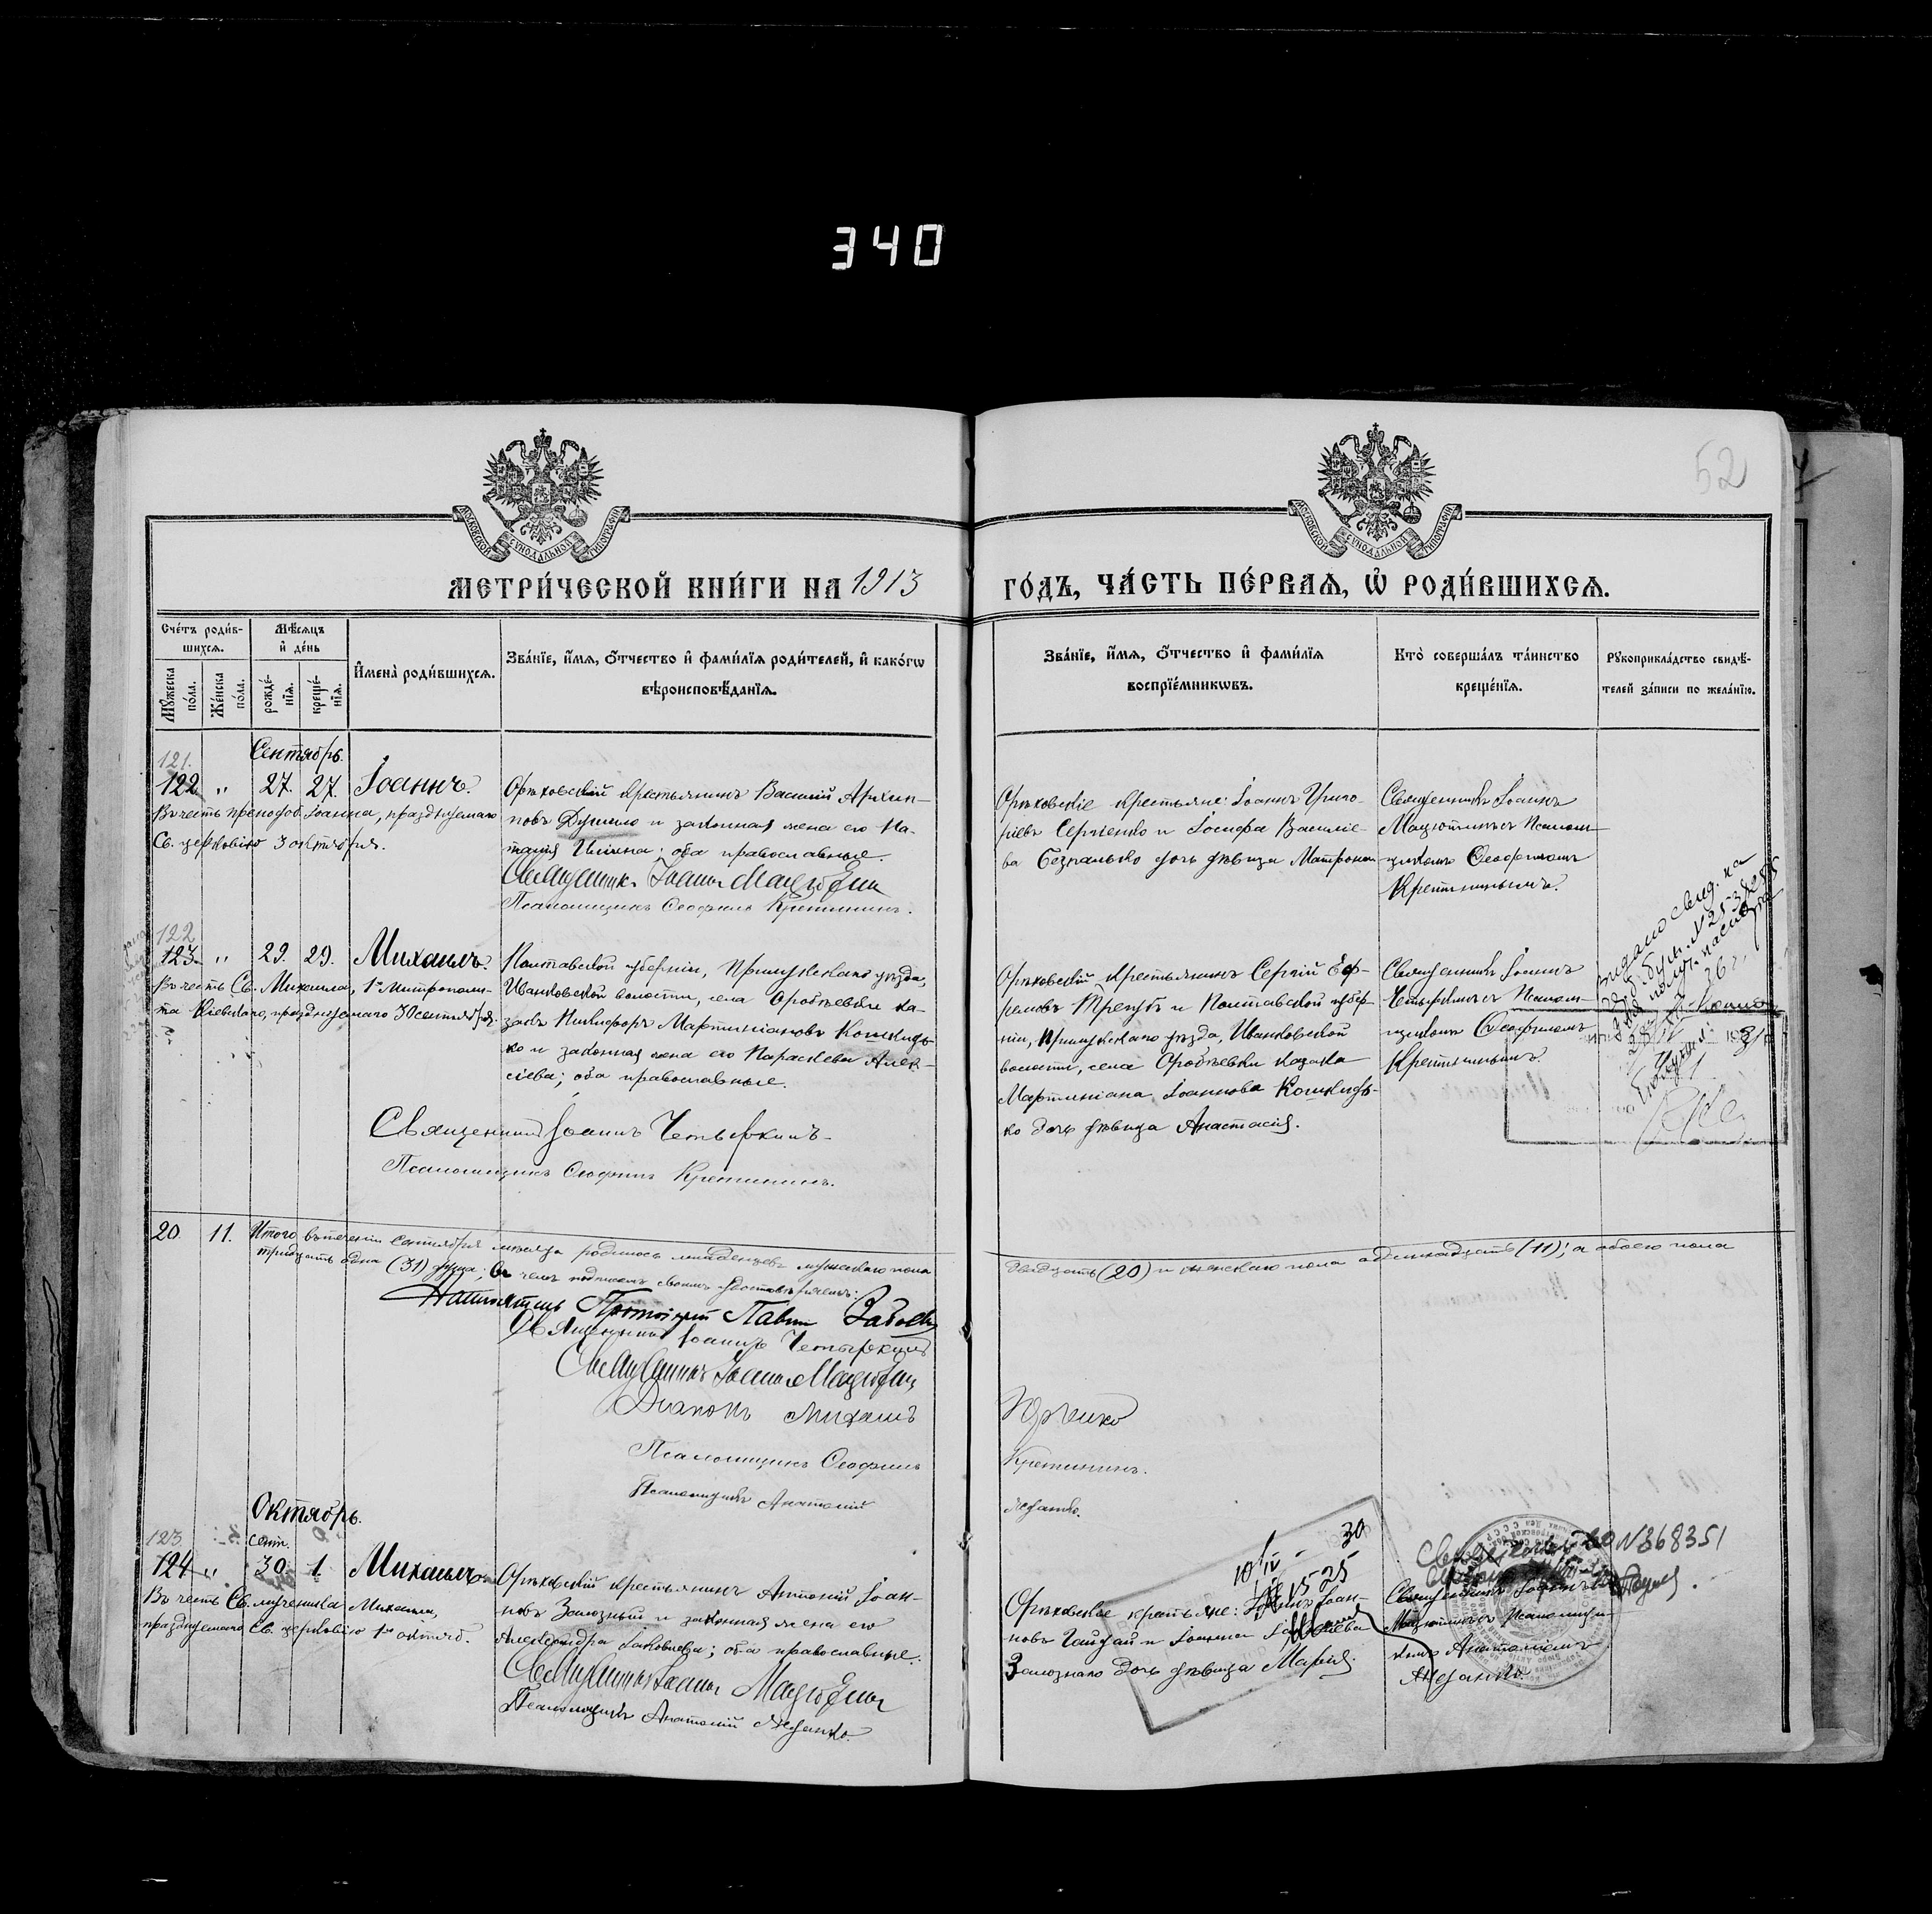 340
52
МОСКОВСКОЙ СѴНОДАЛЬНОЙ ТИПОГРАФІИ
МОСКОВСКОЙ СѴНОДАЛЬНОЙ ТИПОГРАФІИ
МЕТРИ́ЧЕСКОЙ КНИ́ГИ НА 1913
ГО́ДЪ, ЧА́СТЬ ПЕ́РВАѦ, Ѡ҆ РОДИ́ВШИХСѦ.
Сче́тъ роди́в-
шихсѧ.
Мꙋ́жеска по́ла.
Же́нска по́ла.
Мѣ́сѧцъ
и҆ де́нь
рожде́-нїѧ.
креще́-нїѧ.
И҆мена̀ роди́вшихсѧ.
Зва́нїе, и҆́мѧ, ѻ҆́тчество и҆ фами́лїѧ роди́телей, и҆ како́гѡ
вѣроисповѣ́данїѧ.
Зва́нїе, и҆́мѧ, ѻ҆́тчество и҆ фами́лїѧ
воспрїе́мникѡвъ.
Кто̀ соверша́лъ та́инство
креще́нїѧ.
Рꙋкоприкла́дство свидѣ́-
телей за́писи по жела́нїю.
Сентябрь.
121.
122 " 27. 27. Іоаннъ.
Въ честь преподоб. Іоанна, празднуемаго
Св. церковію 3 октября.
Орѣховскій крестьянинъ Василій Архип-
повъ Душило и законная жена его На-
талія Ильина; оба православные.
Священникъ Іоаннъ Мацютинъ
Псаломщикъ Ѳеофилъ Кретининъ.
Орѣховскіе крестьяне: Іоаннъ Григо-
ріевъ Сергіенко и Іосифа Василіе-
ва Безпалько дочь дѣвица Матрона
Священникъ Іоаннъ
Мацютинъ съ Псалом-
щикомъ Ѳеофиломъ
Кретининымъ.
122
123. " 29. 29. Михаилъ.
Въ честь Св. Михаила, 1го Митрополи-
та Кіевскаго, празднуемаго 30 сентября.
Полтавской губерніи, Прилукскаго уѣзда,
Иванковской волости, села Сробъевки ка-
закъ Никифоръ Мартиніановъ Кошкидь-
ко и законная жена его Параскева Алек-
сіева; оба православные.
Священникъ Іоаннъ Четыркинъ
Псаломщикъ Ѳеофилъ Кретининъ.
Орѣховскій крестьянинъ Сергій Еф-
ремовъ Трегубъ и Полтавской губер-
ніи, Прилукскаго уѣзда, Иванковской
волости, села Сробъевки казака
Мартиніана Іоаннова Кошкидь-
ко дочь дѣвица Анастасія.
Священникъ Іоаннъ
Четыркинъ съ Псалом-
щикомъ Ѳеофиломъ
Кретининымъ.
Выдано свид. на
20. 11. Итого въ теченіи Сентября мѣсяца родилось младенцевъ мужескаго пола
двадцать (20) и женскаго пола одиннадцать (11); а обоего пола
тридцать одна (31) душа; въ чемъ подписомъ своимъ удостовѣряемъ:
Настоятель Протоіерей Павелъ
Священникъ Іоаннъ Четыркинъ
Священникъ Іоаннъ Мацютинъ
Діаконъ Михаилъ Юрченко
Псаломщикъ Ѳеофилъ Кретининъ.
Псаломщикъ Анатолій
Октябрь.
123
сент.
124 " 30. 1. Михаилъ
Въ честь Св. мученика Михаила,
празднуемаго Св. церковію 1го октяб.
Орѣховскій крестьянинъ Антоній Іоан-
новъ Залозный и законная жена его
Александра Іаковлева; оба православные.
Священникъ Іоаннъ Мацютинъ
Псаломщикъ Анатолій
10/IV - 30
15-25
Орѣховскіе крестьяне: Іоан-
новъ Гайдай и
Залознаго дочь дѣвица Марія.
N 368351
Священникъ Іоаннъ
Мацютинъ съ Псаломщи-
комъ Анатоліемъ